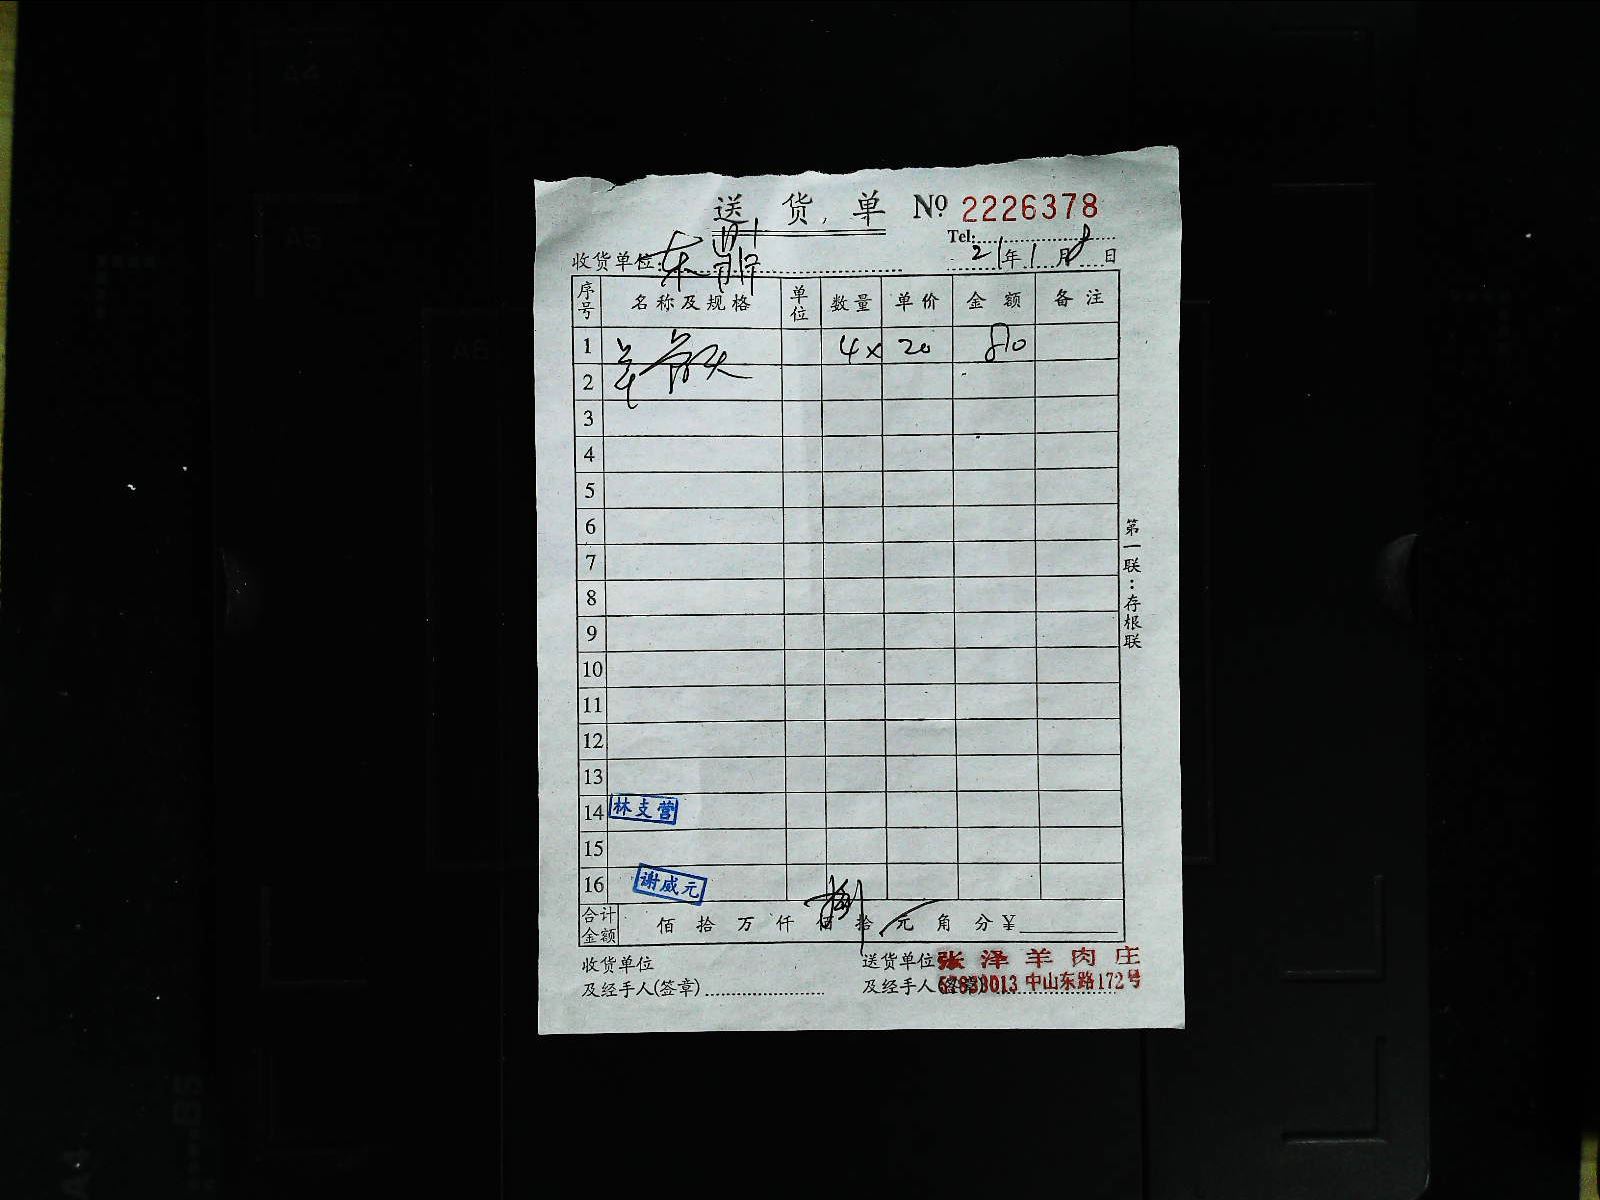 送货单 № 2226378
Tel:
收货单位: 21年1月8日
序号 名称及规格 单位 数量 单价 金额 备注
1 4x 20 80
2
3
4
5
6
7
8
9
10
11
12
13
14 林支营
15
16 谢威元
合计金额 佰拾万仟佰拾元角分¥
收货单位 送货单位 张泽羊肉庄
及经手人(签章) 及经手人 中山东路172号
第一联:存根联